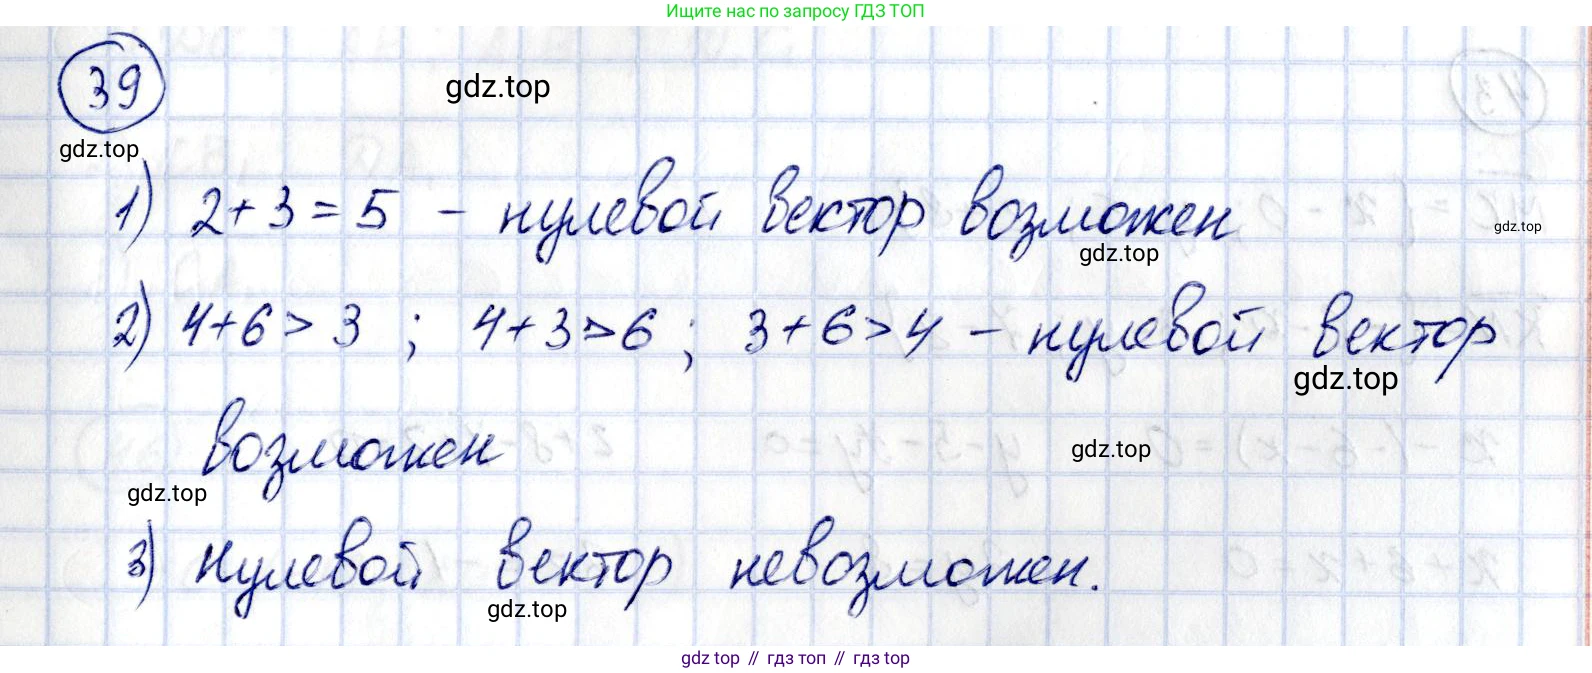 Ищите нас по запросу ГДЗ ТОП
39
gdz.top
gdz.top
1) 2+3=5 – нулевой вектор возможен
gdz.top
gdz.top
2) 4+6>3 ; 4+3>6 ; 3+6>4 – нулевой вектор
gdz.top
возможен
gdz.top
gdz.top
3) Нулевой вектор невозможен.
gdz.top
gdz.top // гдз топ // гдз.top